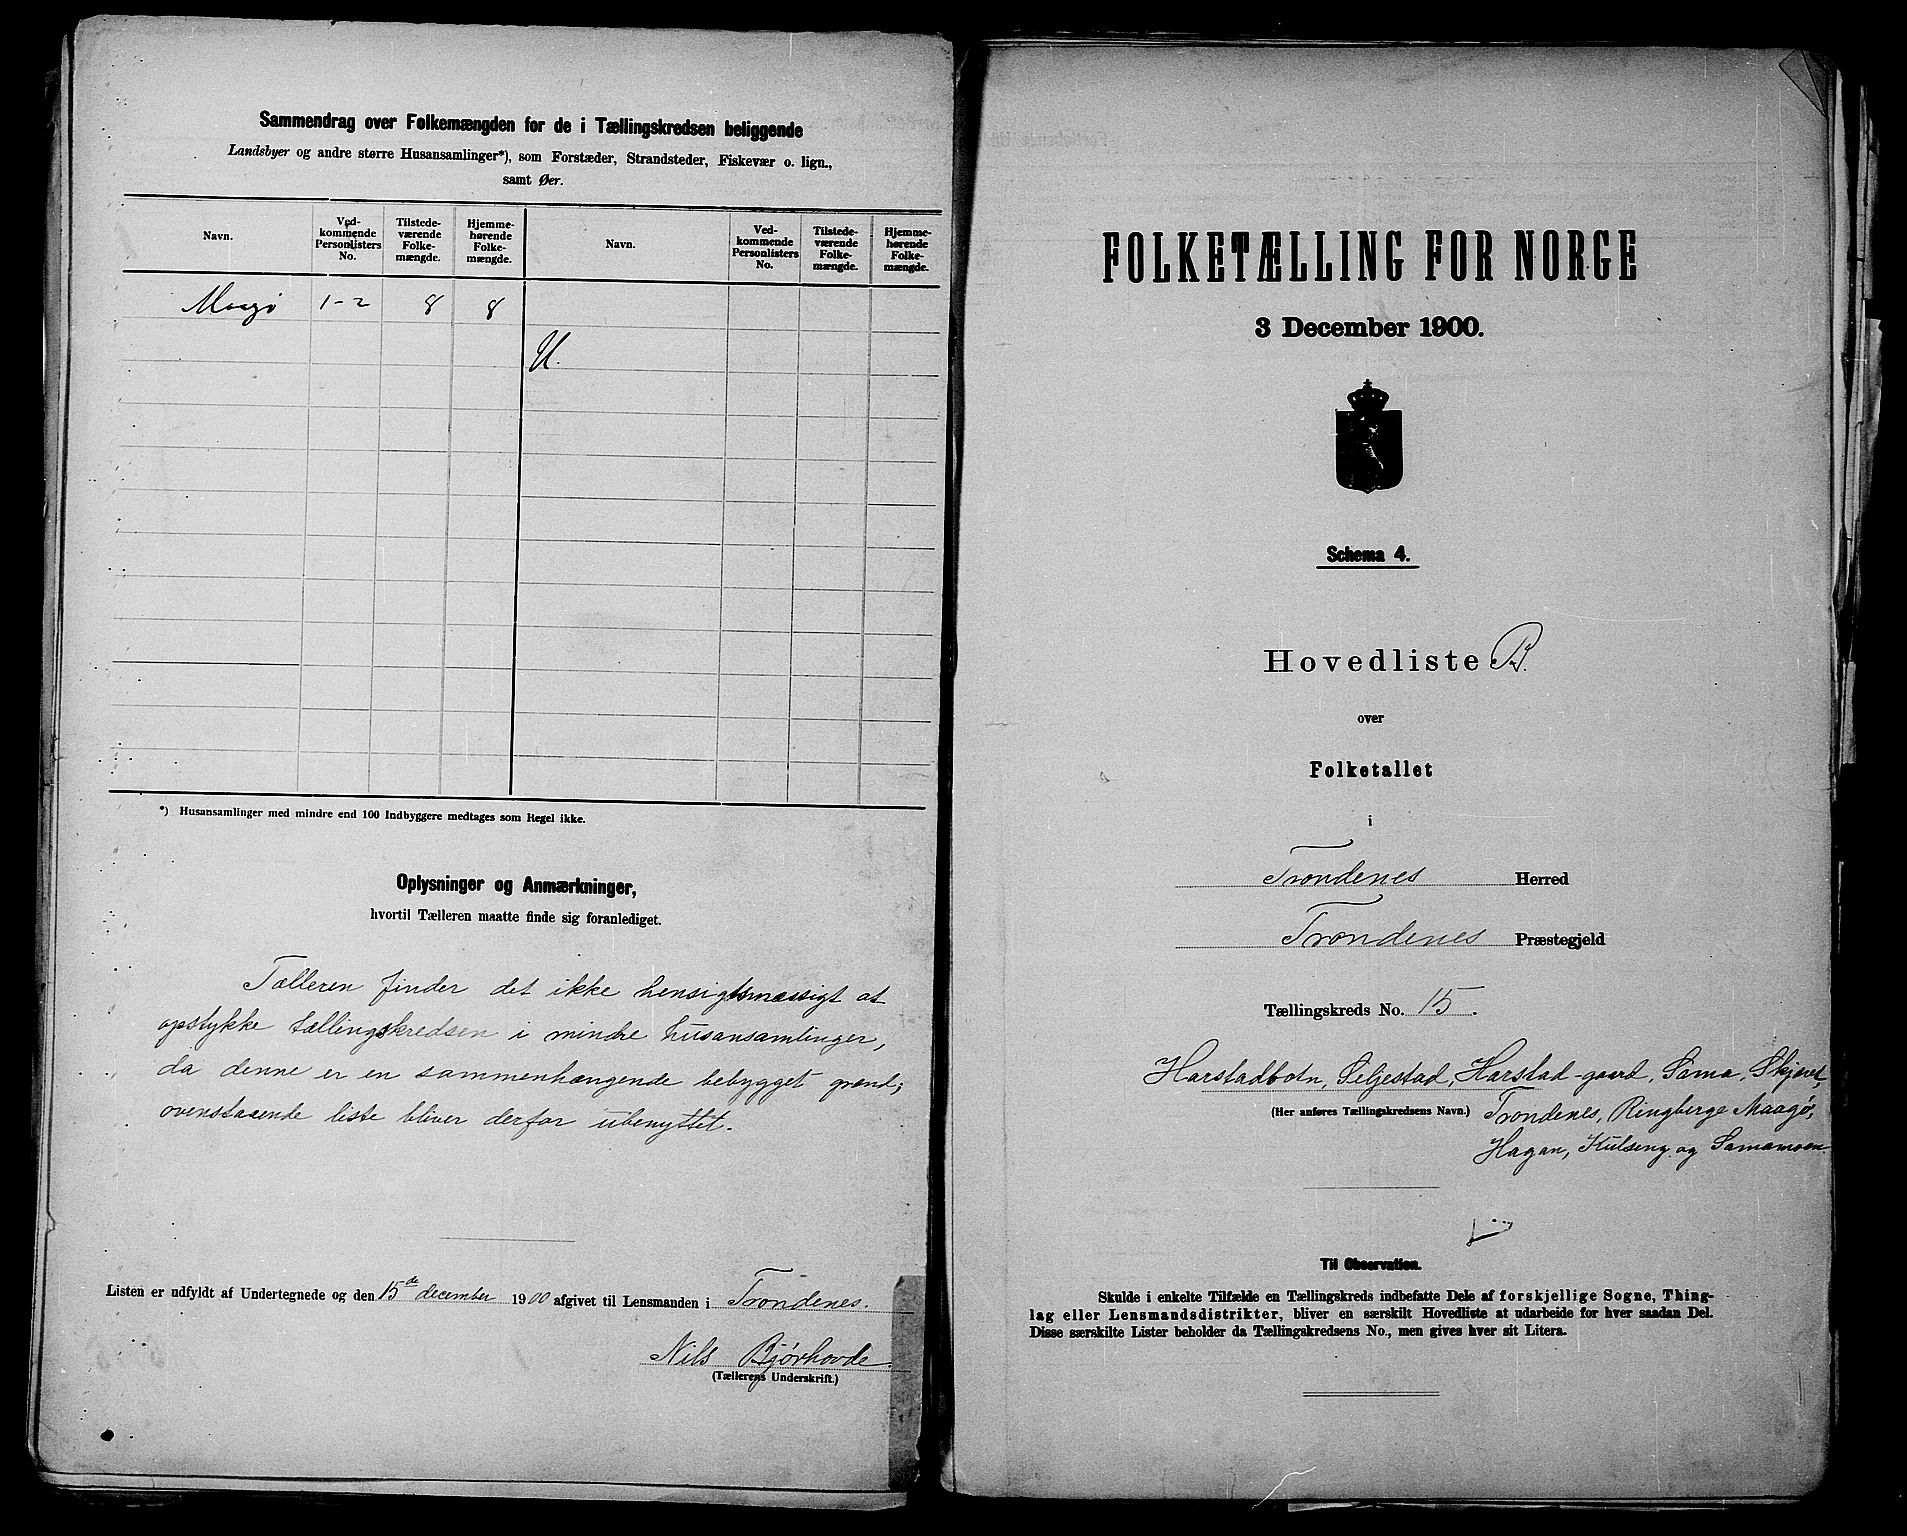 Sammendrag over Folkemængden for de i Tællingskredsen beliggende
Landsbyer og andre større Husansamlinger*), som Forstæder, Strandsteder, Fiskevær o. lign.,
samt Øer.
Navn. Ved-kommende Personlisters No. Tilstede-værende Folke-mængde. Hjemme-hørende Folke-mængde. Navn. Ved-kommende Personlisters No. Tilstede-værende Folke-mængde. Hjemme-hørende Folke-mængde.
Maagø 1-2 8 8
U.
*) Husansamlinger med mindre end 100 Indbyggere medtages som Regel ikke.
Oplysninger og Anmærkninger,
hvortil Tælleren maatte finde sig foranlediget.
Tælleren finder det ikke hensigtsmæssigt at
opstykke tællingskredsen i mindre husansamlinger,
da denne er en sammenhængende bebygget grænd;
ovenstaaende liste bliver derfor ubenyttet.
Listen er udfyldt af Undertegnede og den 15de december 1900 afgivet til Lensmanden i Trondenes.
Nils Bjørhovde.
(Tællerens Underskrift.)
FOLKETÆLLING FOR NORGE
3 December 1900.
Schema 4.
Hovedliste B.
over
Folketallet
i
Trondenes Herred
Trondenes Præstegjeld
Tællingskreds No. 15.
Harstadbotn, Seljestad, Harstad-gaard, Sama, Skjervet,
(Her anføres Tællingskredsens Navn.) Trondenes, Ringberge Maagø,
Hagan, Kulseng og Samamoen.
Til Observation.
Skulde i enkelte Tilfælde en Tællingskreds indbefatte Dele af forskjellige Sogne, Thing-
lag eller Lensmandsdistrikter, bliver en særskilt Hovedliste at udarbeide for hver saadan Del.
Disse særskilte Lister beholder da Tællingskredsens No., men gives hver sit Litera.